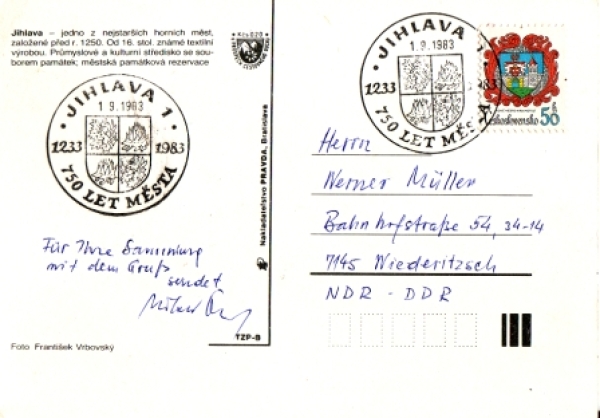 Jihlava – jedno z nejstarších horních měst,
založené před r. 1250. Od 16. stol. známé textilní
výrobou. Průmyslové a kulturní středisko se sou-
borem památek; městská památková rezervace
Kčs 0,20
JIHLAVA 1
1.9.1983
1233 1983
750 LET MĚSTA
Für Ihre Sammlung
mit dem Gruß
sendet
Foto František Vrbovský
Nakladateľstvo PRAVDA, Bratislava
TZP-B
JIHLAVA 1
1.9.1983
1233 1983
750 LET MĚSTA
Československo 50 h
Herrn
Werner Müller
Bahnhofstraße 54, 34-14
7145 Wiederitzsch
NDR - DDR